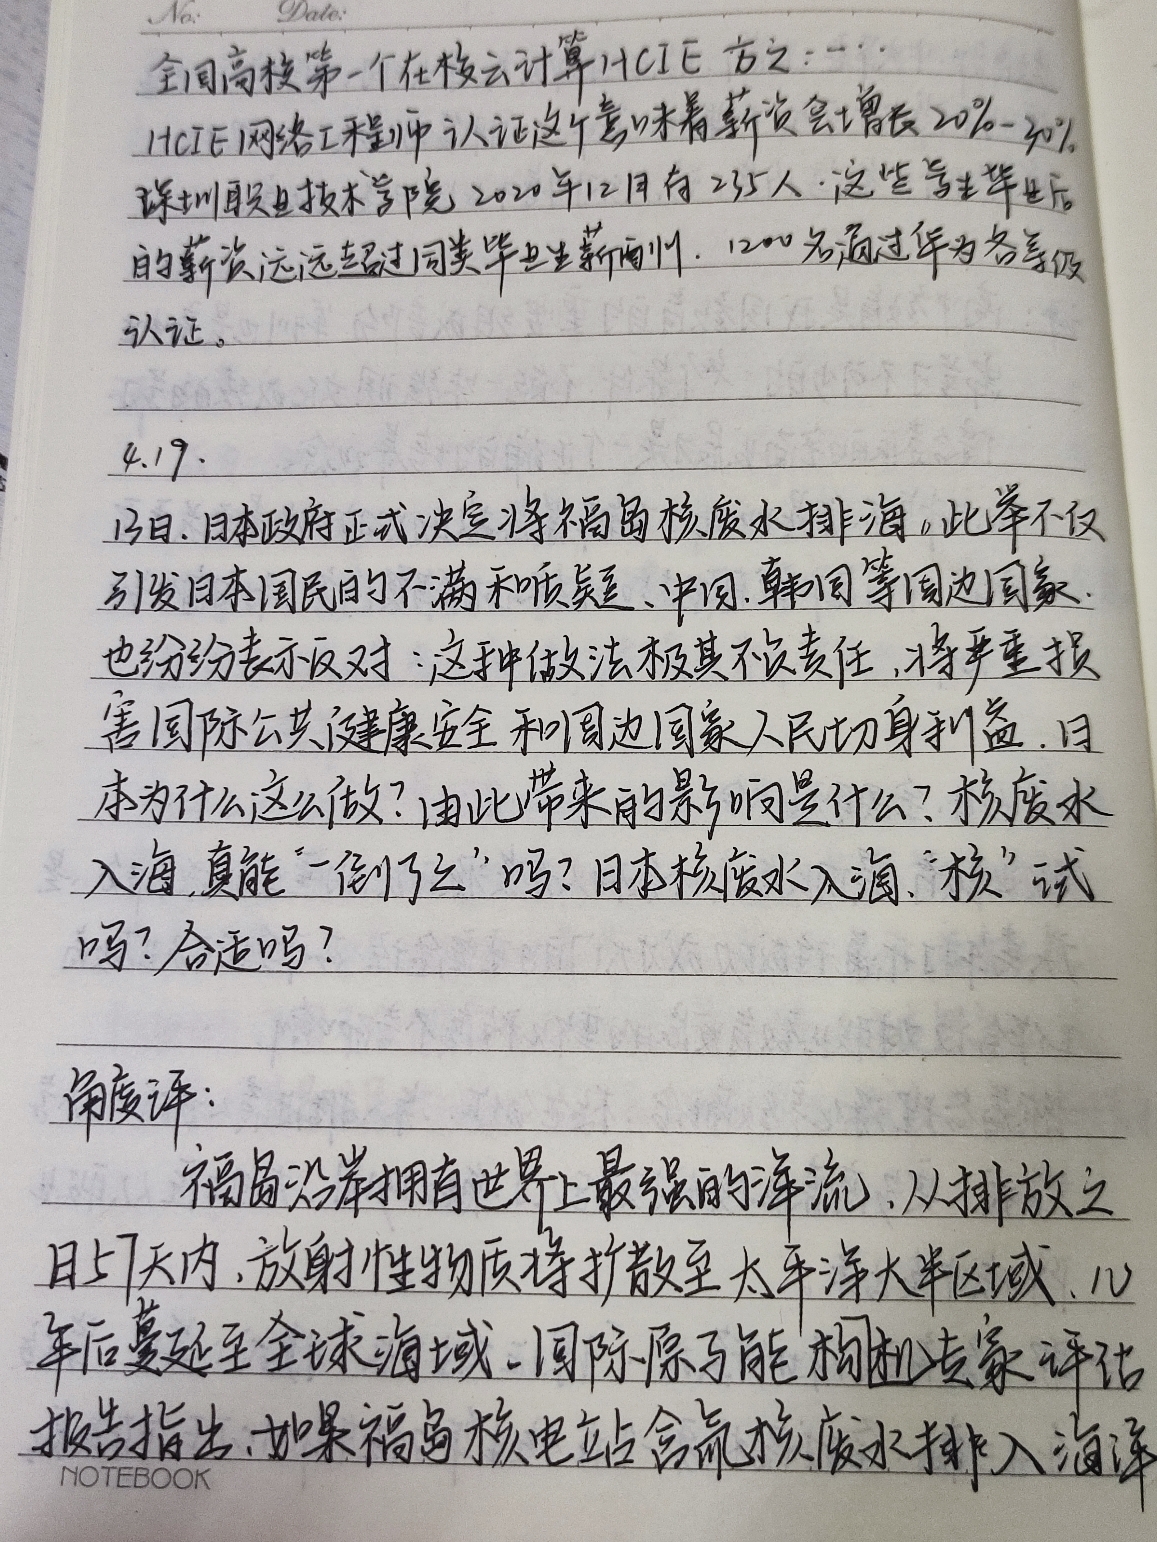 No: Date:
全国高校第一个在校云计算HCIE 方之:一··
HCIE网络工程师认证这个意味着薪资会增长20%-30%
深圳职业技术学院2020年12月有235人.这些学生毕业后
的薪资远远超过同类毕业生薪酬.1200名通过华为各等级
认证。
4.19.
13日.日本政府正式决定将福岛核废水排海。此举不仅
引发日本国民的不满和质疑、中国.韩国等周边国家.
也纷纷表示反对:这种做法极其不负责任,将严重损
害国际公共健康安全和周边国家人民切身利益.日
本为什么这么做?由此带来的影响是什么?核废水
入海,真能“一倒了之”吗?日本核废水入海,“核”试
吗?合适吗?
角度评:
福岛沿岸拥有世界上最强的洋流,从排放之
日57天内,放射性物质将扩散至太平洋大半区域,10
年后蔓延至全球海域。国际原子能机构专家评估
报告指出,如果福岛核电站含氚核废水排入海洋
NOTEBOOK